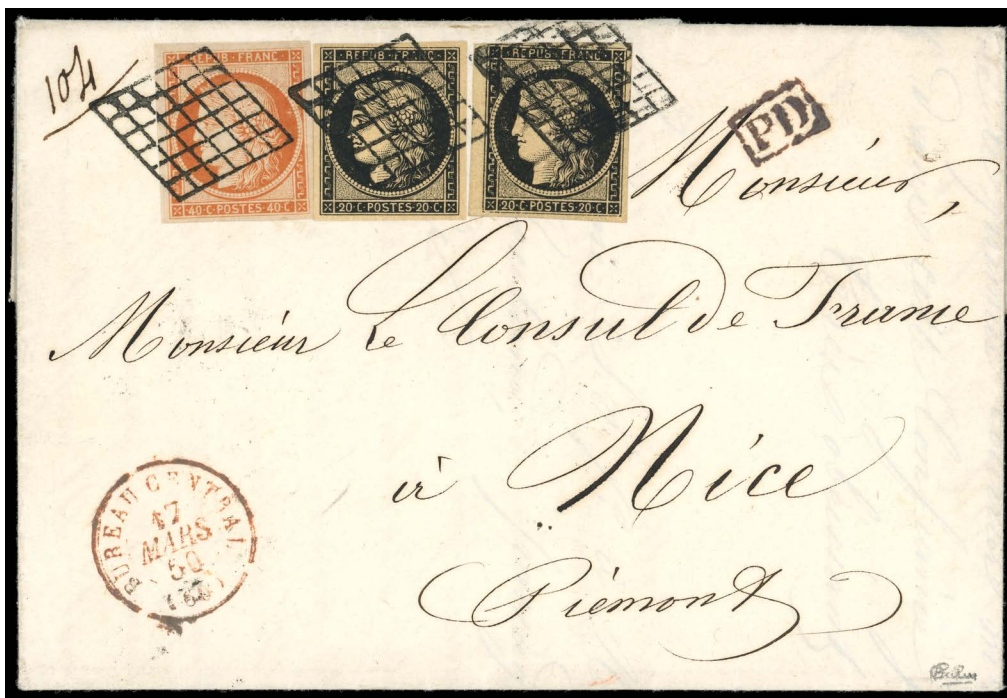 104
REPUB·FRANC
REPUB·FRANC
REPUB·FRANC
40·C·POSTES·40·C
20·C·POSTES·20·C
20·C·POSTES·20·C
PD
Monsieur,
Monsieur Le Consul de France
à Nice
Piémont
BUREAU CENTRAL
17
MARS
50